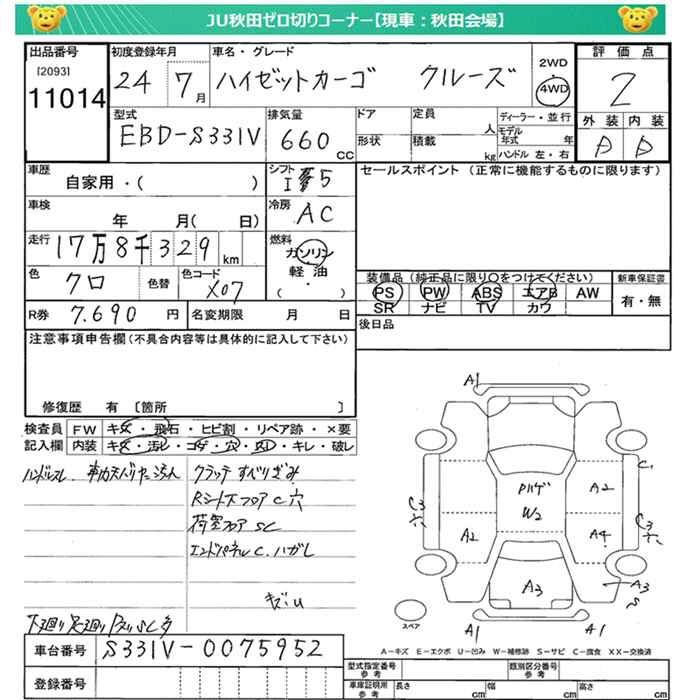 JU秋田ゼロ切りコーナー【現車：秋田会場】
出品番号 初度登録年月 車名・グレード 2WD 評価点
[2093] 24 7月 ハイゼットカーゴ クルーズ 4WD 2
11014
型式 排気量 ドア 定員 ディーラー・並行 外装 内装
EBD-S331V 660 CC 人 モデル年式 年
形状 積載 kg ハンドル 左・右 D D
車歴 自家用・( ) シフト I 5 セールスポイント (正常に機能するものに限ります)
車検 年 月( 日) 冷房 AC
走行 17万8千329km 燃料 ガソリン 軽油・( )
色 クロ 色替 色コード X07
装備品 (純正品に限り○をつけてください) 新車保証書
PS PW ABS エアB AW 有・無
SR ナビ TV カワ
R券 7.690円 名変期限 月 日 後日品
注意事項申告欄(不具合内容等は具体的に記入して下さい)
修復歴 有 [箇所 ]
検査員 FW キズ・飛石・ヒビ割・リペア跡・×要
記入欄 内装 キズ・汚レ・コゲ・穴・凹・キレ・破レ
クラッチ すべりぎみ
Rシート下フロア C 穴
荷室フロア SC
エンドパネル C. ハガレ
キズ・凹
下廻り 足廻り SC多
A1
C
Pハゲ
W2
A2
C3
C3
A2
A4
A3
A3
S
A1
A1
スペア
A－キズ E－エクボ U－凹み W－補修跡 S－サビ C－腐食 XX－交換済
車台番号 S331V-0075952
登録番号
型式指定番号 参考 類別区分番号 参考
車庫証明用 参考 長さ cm 幅 cm 高さ cm